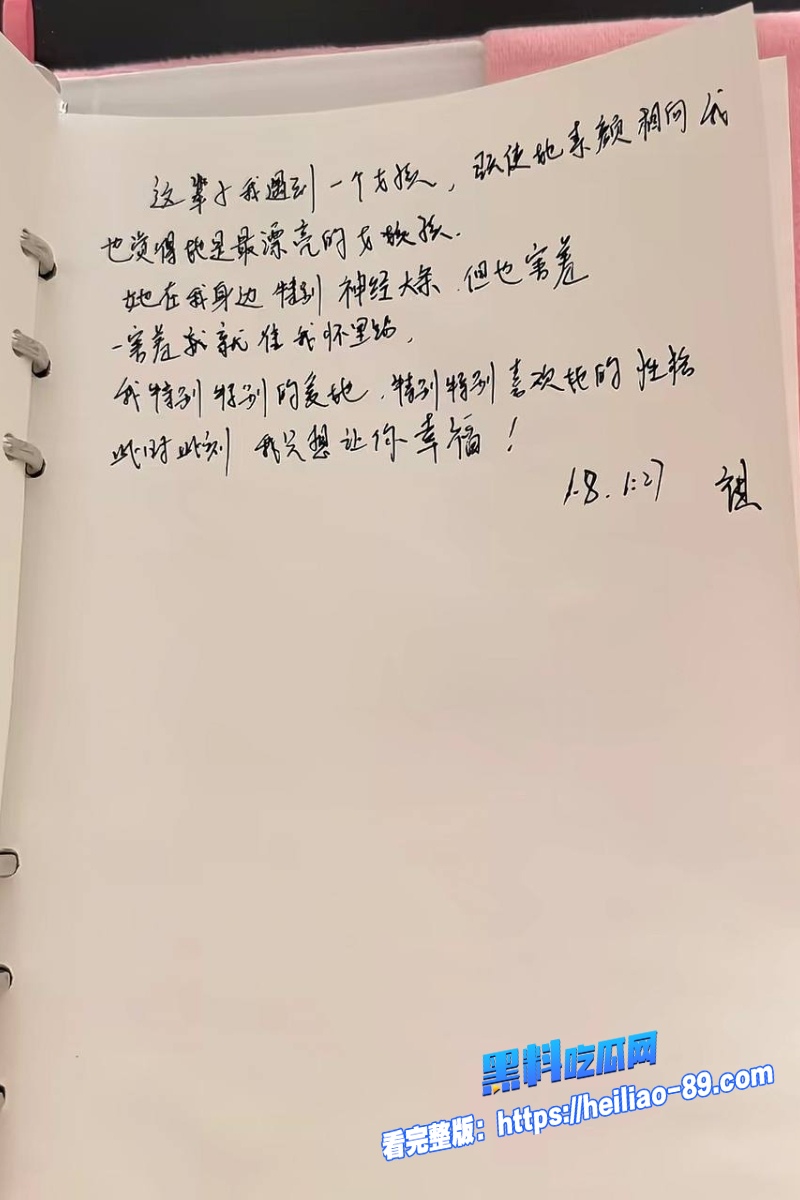 这辈子我遇到一个女孩，既使她素颜相向我
也觉得她是最漂亮的女孩.
她在我身边特别神经大条.但也害羞
一害羞就往我怀里
我特别特别的爱她.特别特别喜欢她的性格
此时此刻 我只想让你幸福！
1.8. 1:27
黑料吃瓜网
看完整版：https://heiliao-89.com